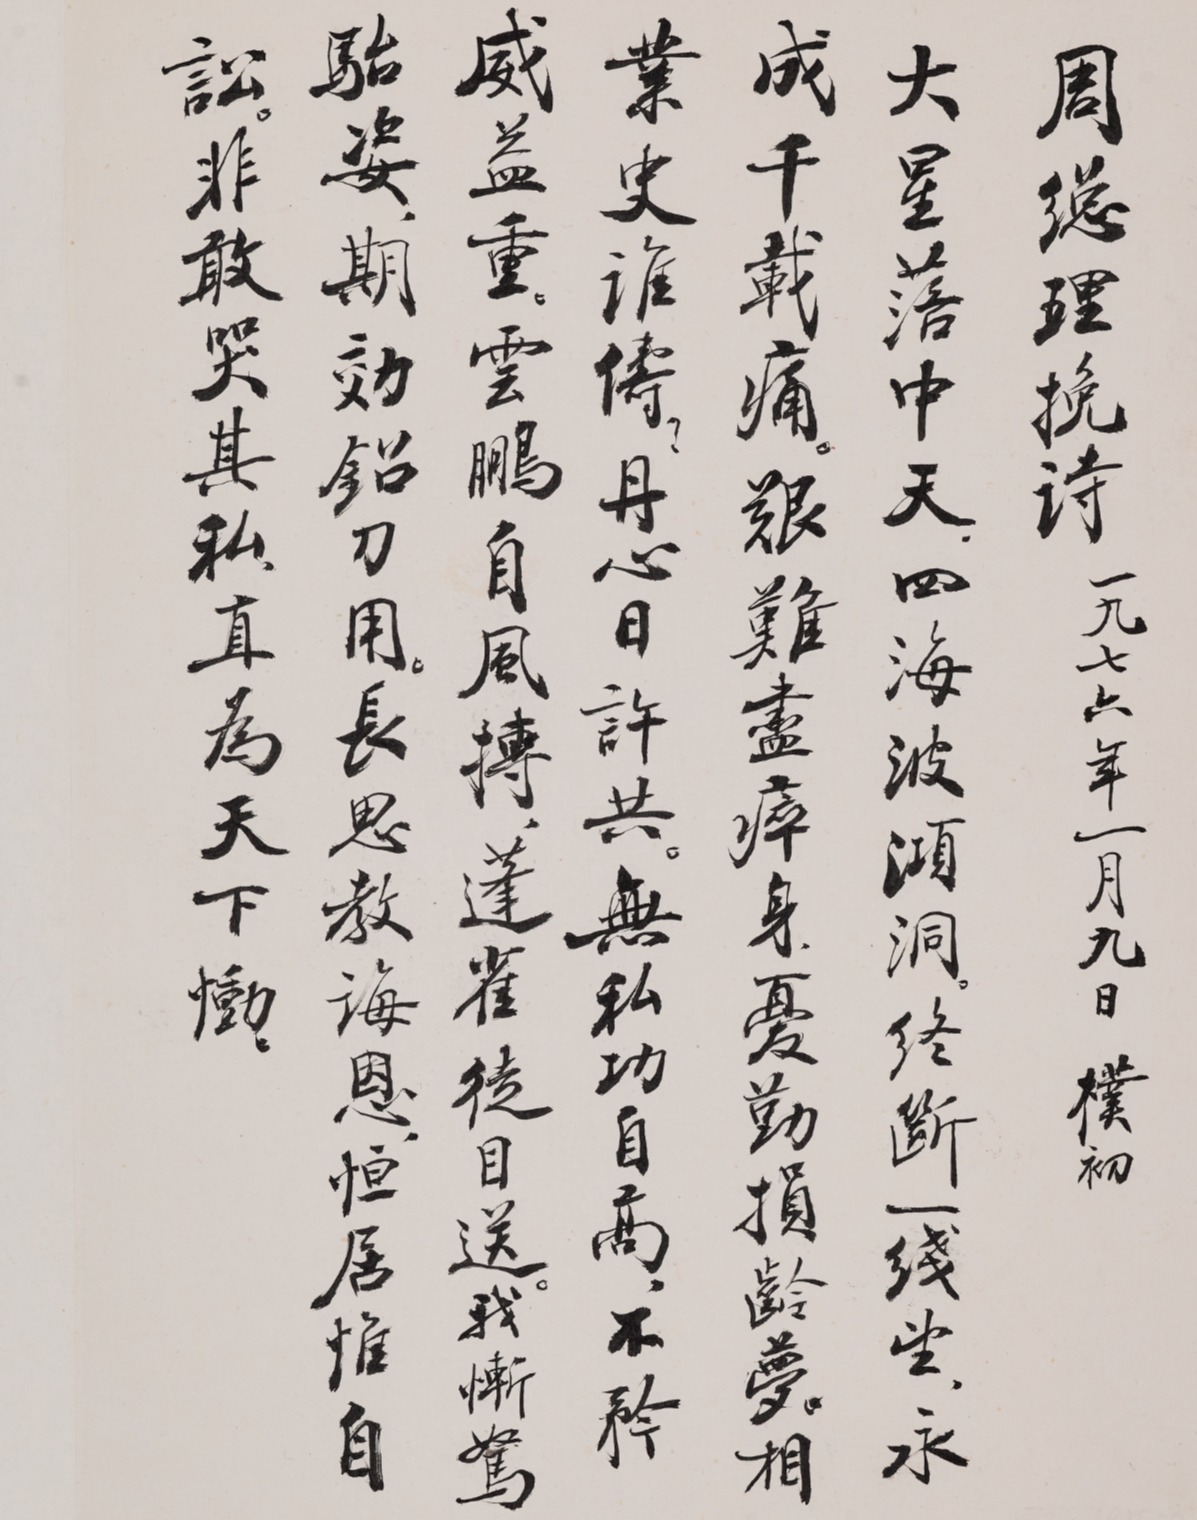 周總理挽诗 一九七六年一月九日 樸初
大星落中天，四海波澒洞。终斷一线望，永
成千載痛。艱難盡瘁身，憂勤損齡夢。相
業史誰儔？丹心日許共。無私功自高，不矜
威益重。雲鵬自風搏，蓬雀徒目送。我慚駑
駘姿，期効鉛刀用。長思教诲恩，恒居惟自
訟。非敢哭其私，直為天下慟。